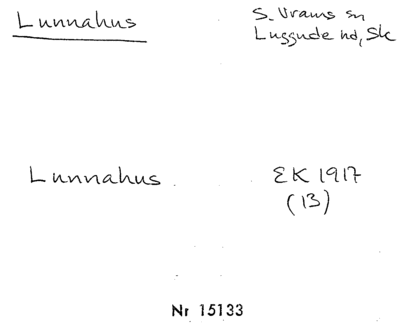 Lunnahus
S. Vrams sn
Luggude hd, Sk
Lunnahus
EK 1917
(13)
Nr 15133